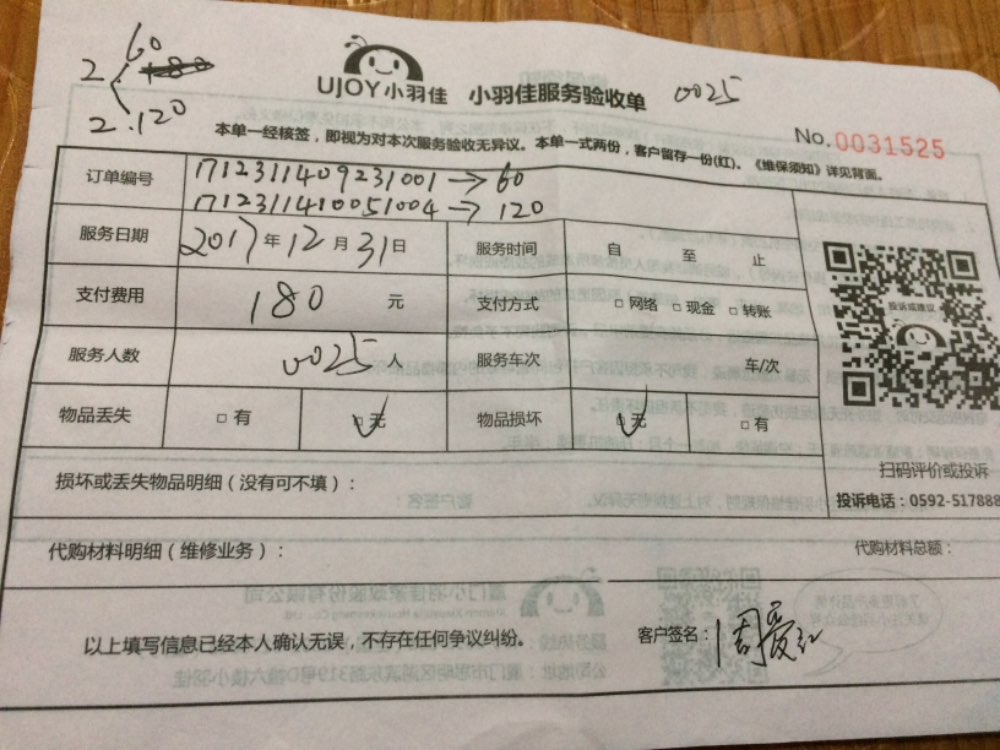 60
2 180
2.120
UJOY小羽佳 小羽佳服务验收单 0025
No.0031525
本单一经核签，即视为对本次服务验收无异议。本单一式两份，客户留存一份(红)。《维保须知》详见背面。
订单编号 1712311409231001→60
1712311410051004→120
服务日期 2017年12月31日 服务时间 自 至 止
支付费用 180 元 支付方式 □网络 □现金 □转账
投诉或建议
服务人数 0025人 服务车次 车/次
物品丢失 □有 □无 物品损坏 □无 □有
扫码评价或投诉
损坏或丢失物品明细（没有可不填）：
投诉电话：0592-517888
代购材料明细（维修业务）： 代购材料总额：
以上填写信息已经本人确认无误，不存在任何争议纠纷。 客户签名：周爱红